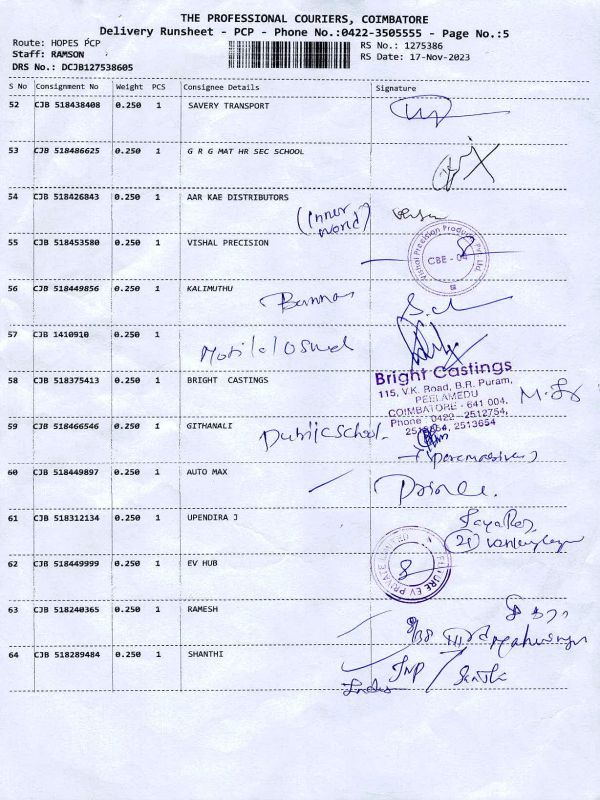 THE PROFESSIONAL COURIERS, COIMBATORE
Delivery Runsheet - PCP - Phone No.:0422-3505555 - Page No.:5
Route: HOPES PCP
RS No.: 1275386
Staff: RAMSON
RS Date: 17-Nov-2023
DRS No.: DCJB127538605
S No Consignment No Weight PCS Consignee Details Signature
52 CJB 518438408 0.250 1 SAVERY TRANSPORT
53 CJB 518486625 0.250 1 G R G MAT HR SEC SCHOOL
54 CJB 518426843 0.250 1 AAR KAE DISTRIBUTORS
(Inner
world)
55 CJB 518453580 0.250 1 VISHAL PRECISION
Vishal Precision Products Pvt. Ltd.
CBE - 04
56 CJB 518449856 0.250 1 KALIMUTHU
57 CJB 1410910 0.250 1
58 CJB 518375413 0.250 1 BRIGHT CASTINGS
Bright Castings
115, V.K. Road, B.R. Puram,
PEELAMEDU
COIMBATORE - 641 004.
Phone : 0422 - 2512754,
2513654
59 CJB 518466546 0.250 1 GITHANALI
Public School.
60 CJB 518449897 0.250 1 AUTO MAX
61 CJB 518312134 0.250 1 UPENDIRA J
62 CJB 518449999 0.250 1 EV HUB
FUTURE EV PRIVATE LIMITED
63 CJB 518240365 0.250 1 RAMESH
64 CJB 518289484 0.250 1 SHANTHI